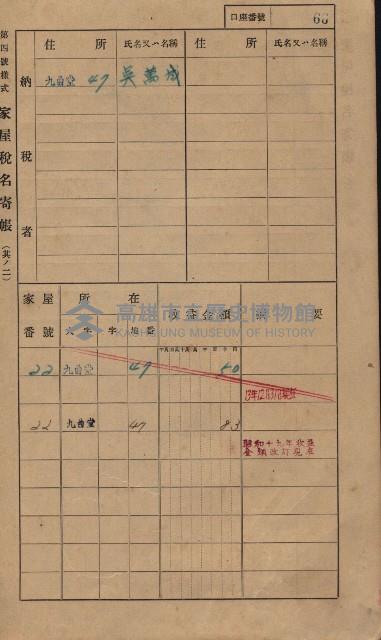 口座番號 60
第四號樣式 家屋稅名寄帳 (其ノ二)
納稅者
住所 氏名又ハ名稱 住所 氏名又ハ名稱
九曲堂 47 吳萬成
家屋番號 所在 收益金額 摘要
大字 字 地番
22 九曲堂 47 50
22 九曲堂 47 83
昭和十九年收益
金額改訂現在
高雄市立歷史博物館
KAOHSIUNG MUSEUM OF HISTORY